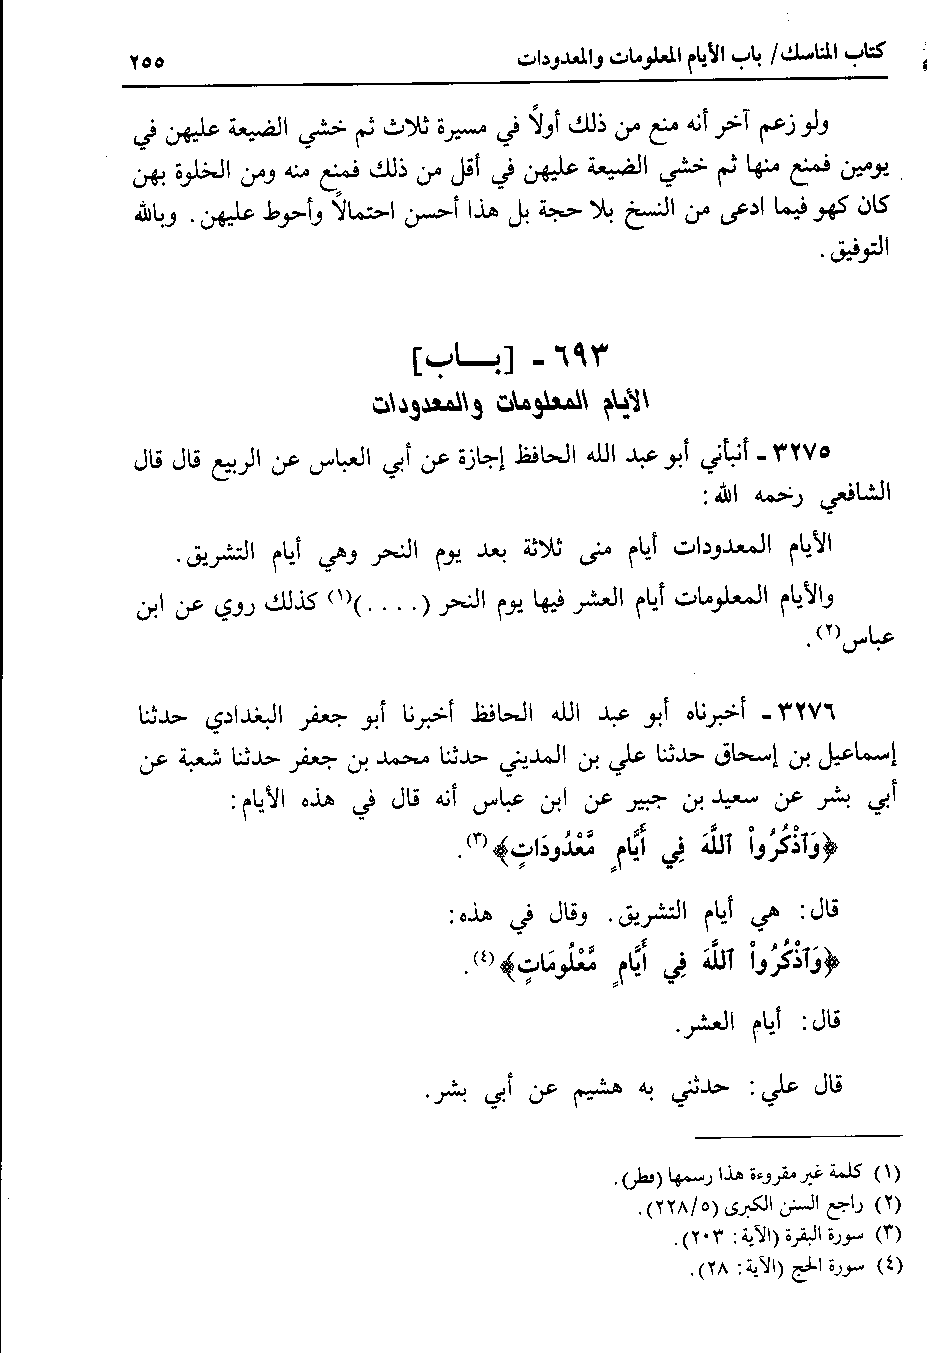 كتاب المناسك/ باب الأيام المعلومات والمعدودات
٢٥٥
ولو زعم آخر أنه منع من ذلك أولاً في مسيرة ثلاث ثم خشي الضيعة عليهن في
يومين فمنع منها ثم خشي الضيعة عليهن في أقل من ذلك فمنع منه ومن الخلوة بهن
كان كهو فيما ادعى من النسخ بلا حجة بل هذا أحسن احتمالاً وأحوط عليهن. وبالله
التوفيق.
٦٩٣ - [بـــاب]
الأيام المعلومات والمعدودات
٣٢٧٥ - أنبأني أبو عبد الله الحافظ إجازة عن أبي العباس عن الربيع قال قال
الشافعي رحمه الله:
الأيام المعدودات أيام منى ثلاثة بعد يوم النحر وهي أيام التشريق.
والأيام المعلومات أيام العشر فيها يوم النحر (....)(١) كذلك روي عن ابن
عباس(٢).
٣٢٧٦ - أخبرناه أبو عبد الله الحافظ أخبرنا أبو جعفر البغدادي حدثنا
إسماعيل بن إسحاق حدثنا علي بن المديني حدثنا محمد بن جعفر حدثنا شعبة عن
أبي بشر عن سعيد بن جبير عن ابن عباس أنه قال في هذه الأيام:
﴿وَٱذْكُرُواْ ٱللَّهَ فِي أَيَّامٍ مَّعْدُودَاتٍ﴾(٣).
قال: هي أيام التشريق. وقال في هذه:
﴿وَٱذْكُرُواْ ٱللَّهَ فِي أَيَّامٍ مَّعْلُومَاتٍ﴾(٤).
قال: أيام العشر.
قال علي: حدثني به هشيم عن أبي بشر.
(١) كلمة غير مقروءة هذا رسمها
(٢) راجع السنن الكبرى (٢٢٨/٥).
(٣) سورة البقرة (الآية: ٢٠٣).
(٤) سورة الحج (الآية: ٢٨).